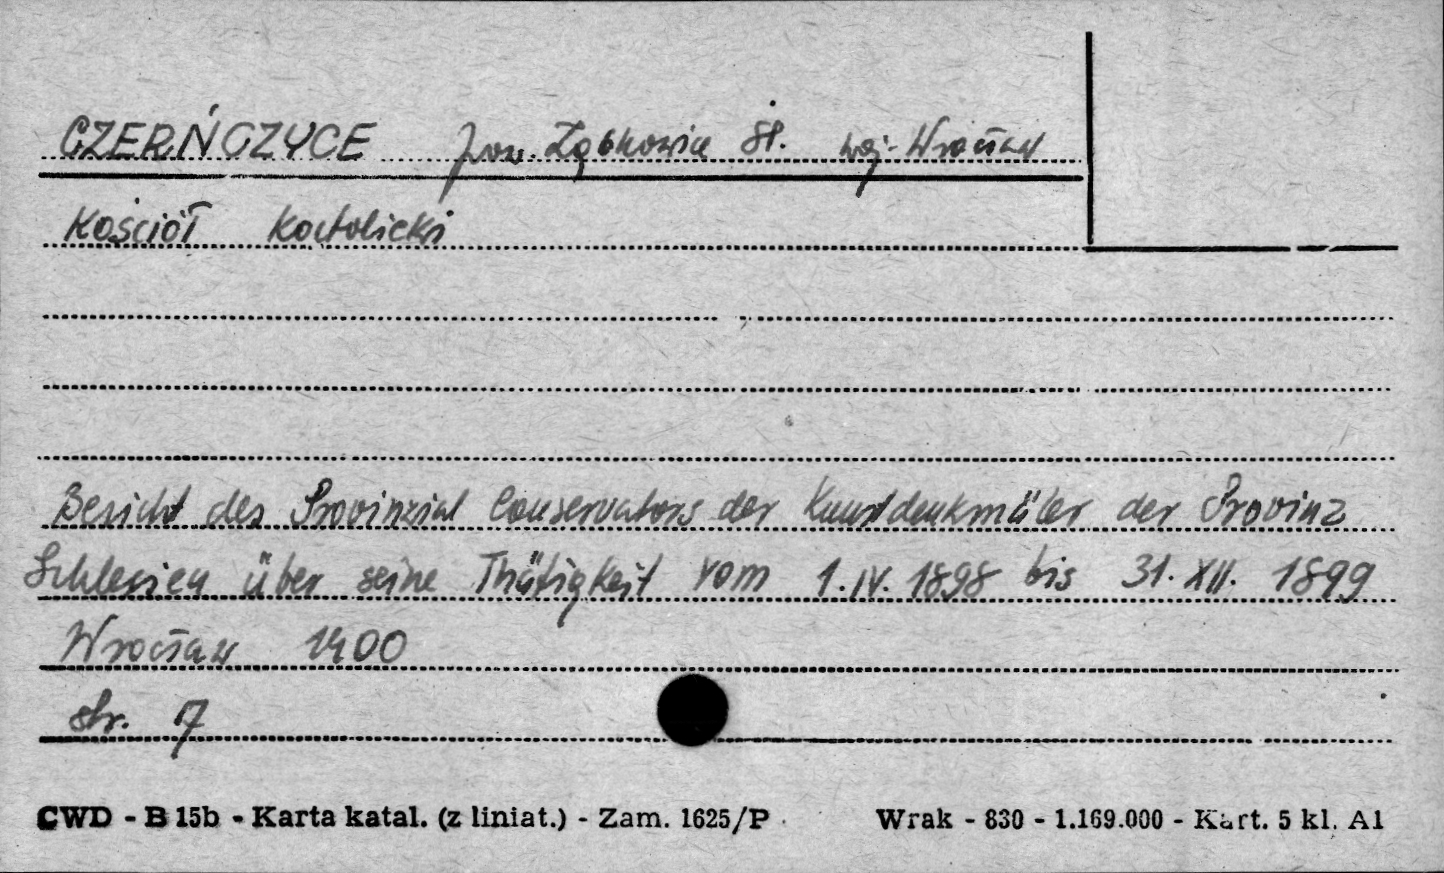 CZERŃCZYCE pow. Ząbkowice Śl. woj. Wrocław
Kościół Katolicki
Bericht des Provinzial Conservators der Kunstdenkmäler der Provinz
Schlesien über seine Thätigkeit vom 1.IV.1898 bis 31.XII.1899
Wrocław 1900
str. 17
CWD - B 15b - Karta katal. (z liniat.) - Zam. 1625/P Wrak - 830 - 1.169.000 - Kart. 5 kl. A1